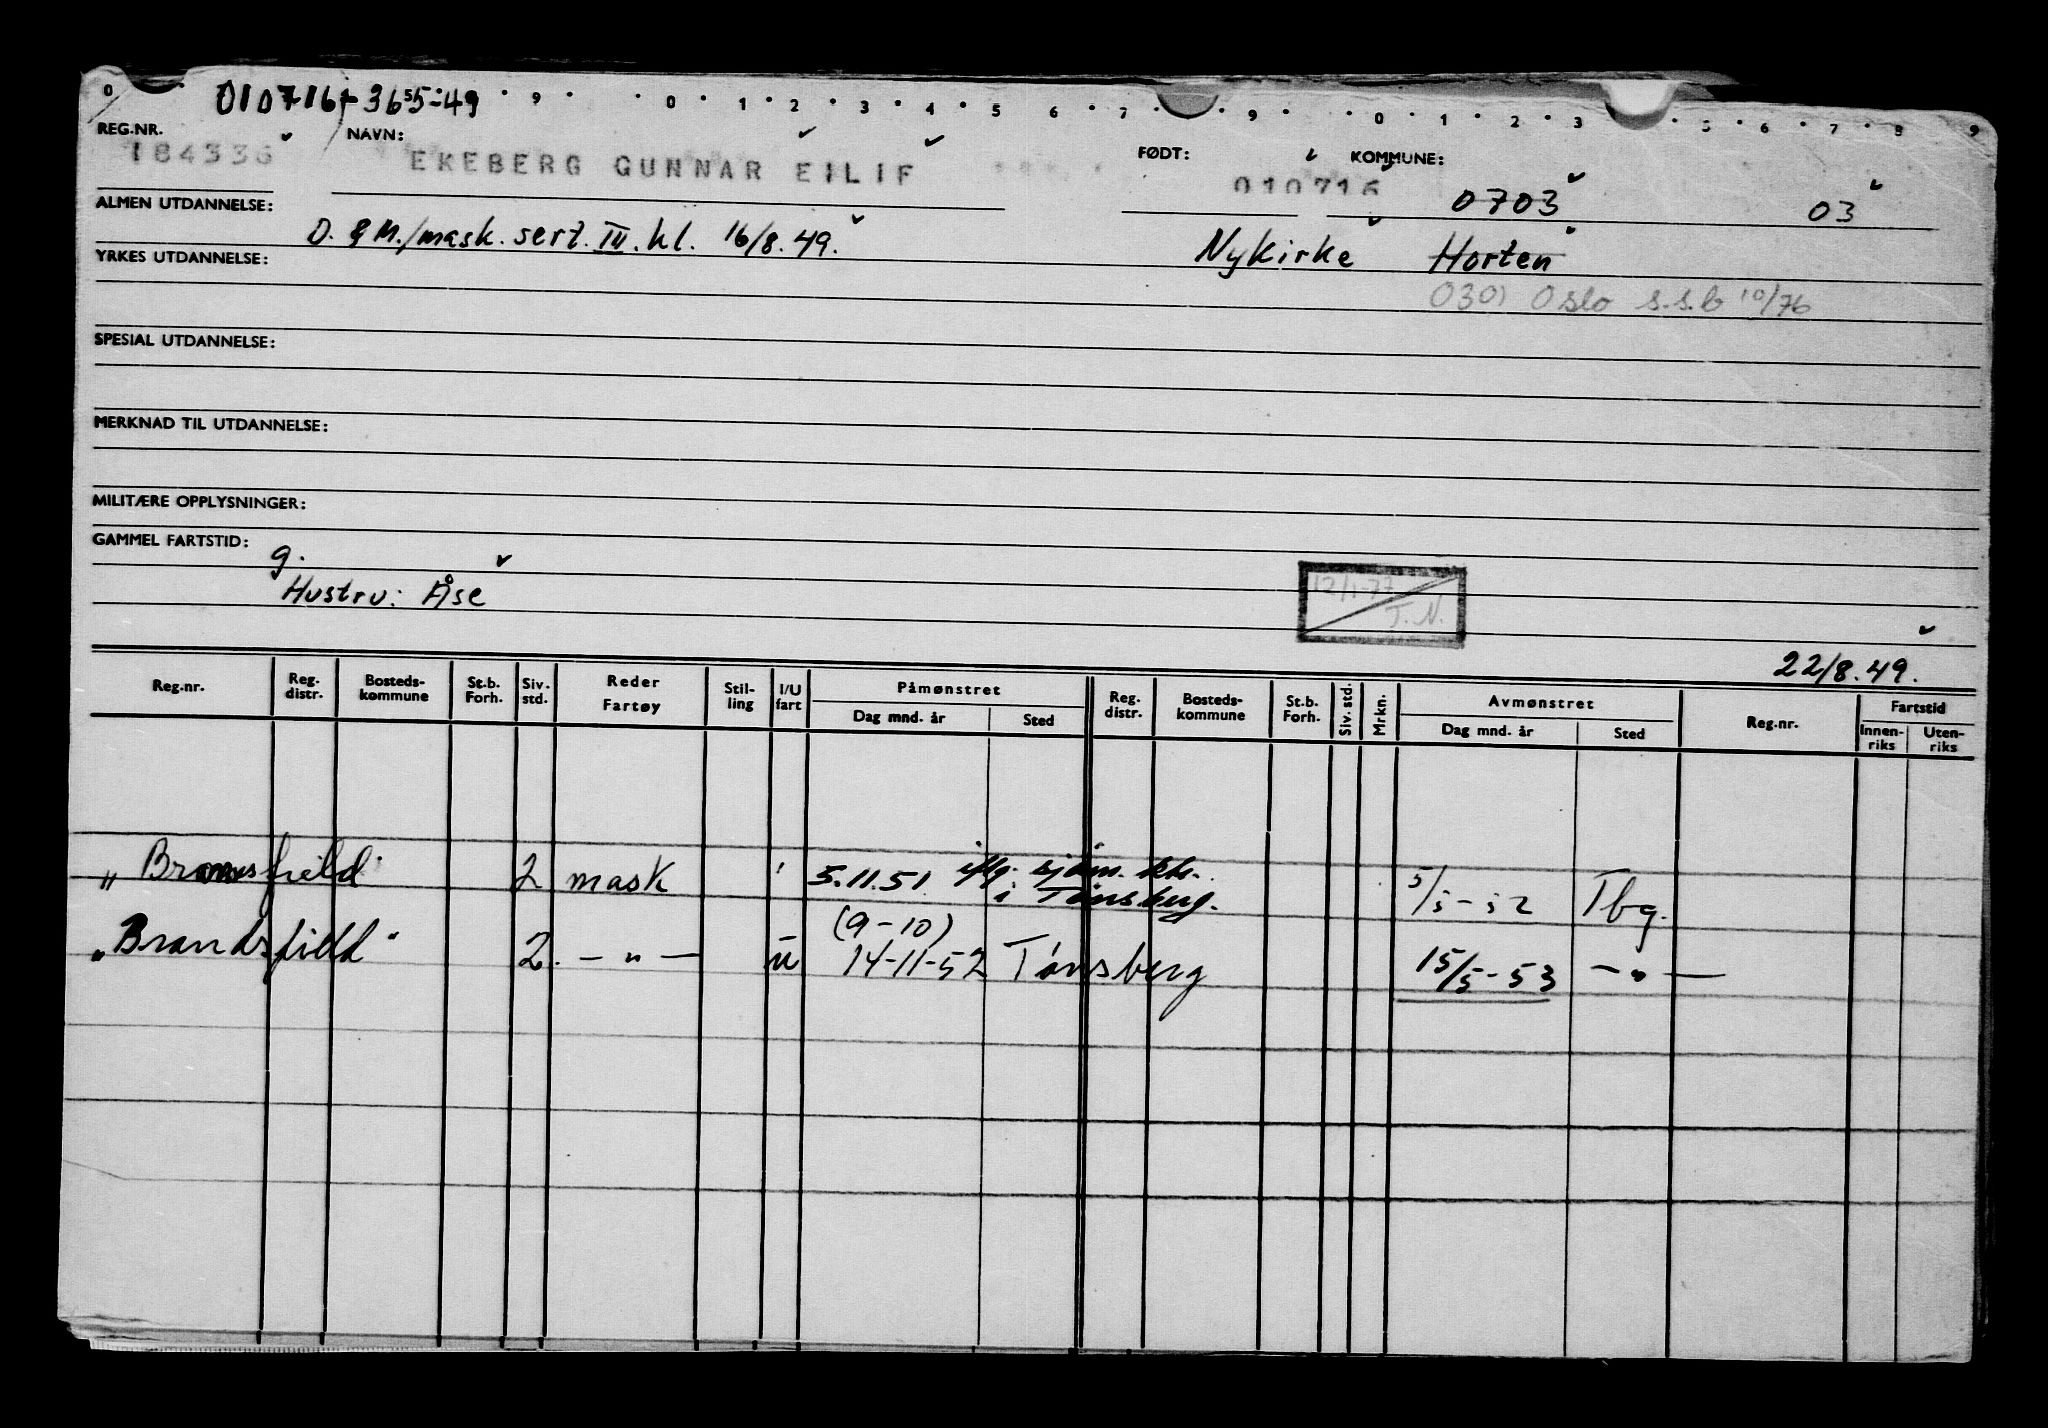 0 9 0 1 2 3 4 5 6 7 9 0 1 2 3 5 6 7 8 9
010716-36549
REG.NR. NAVN: FØDT: KOMMUNE:
184336 EKEBERG GUNNAR EILIF 010716 0703 03
ALMEN UTDANNELSE: D. & M./mask. sert. III. kl. 16/8.49. Nykirke Horten
YRKES UTDANNELSE:
0301 Oslo s.s.b 10/76
SPESIAL UTDANNELSE:
MERKNAD TIL UTDANNELSE:
MILITÆRE OPPLYSNINGER:
GAMMEL FARTSTID: g.
Hustru: Åse
12/1-77
T.N.
22/8.49.
Reg.nr. Reg. distr. Bosteds-kommune St.b. Forh. Siv. std. Reder Fartøy Stil-ling I/U fart Påmønstret Dag mnd. år Sted Reg. distr. Bosteds-kommune St.b. Forh. Siv. std. Mrkn. Avmønstret Dag mnd. år Sted Reg.nr. Fartstid Innen-riks Uten-riks
"Bransfield" 2 mask 5.11.51 iflg. sjøm. ktr. 5/5-52 Tbg.
i Tønsberg.
(9-10)
"Brandsfield" 2. -"- u 14-11-52 Tønsberg 15/5-53 -"-